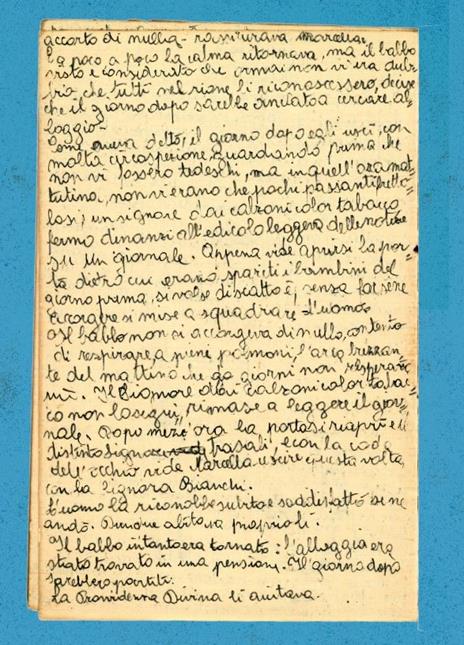 accorto di nulla - rassicurava Marcella.
E a poco a poco la calma ritornava, ma il babbo
visto e considerato che ormai non vi era dub=
bio che tutti nel rione li riconoscessero, decise
che il giorno dopo sarebbe andato a cercare al=
loggio.
Come aveva detto, il giorno dopo egli uscì, con
molta circospezione, guardando prima che
non vi fossero tedeschi, ma in quell'ora mat=
tutina, non vi erano che pochi passanti fretto=
losi; un signore dai calzoni color tabacco
fermo dinanzi all'edicola leggeva delle notizie
su un giornale. Appena vide aprirsi la por=
ta dietro cui erano spariti i bambini del
giorno prima, si volse di scatto e, senza farsene
accorgere si mise a squadrare l'uomo.
Il babbo non si accorgeva di nulla, contento
di respirare a pieni polmoni, l'aria frizzan=
te del mattino che da giorni non respirava
più. Il signore dai calzoni color tabac=
co non lo seguì, rimase a leggere il gior=
nale. Dopo mezz'ora la porta si riaprì e il
distinto signore trasalì, e con la coda
dell'occhio vide Marcella uscire questa volta,
con la Signora Bianchi.
L'uomo la riconobbe subito e soddisfatto se ne
andò. Dunque abitava proprio lì.
Il babbo intanto era tornato: l'alloggio era
stato trovato in una pensione. Il giorno dopo
sarebbero partiti.
La Provvidenza Divina li aiutava.